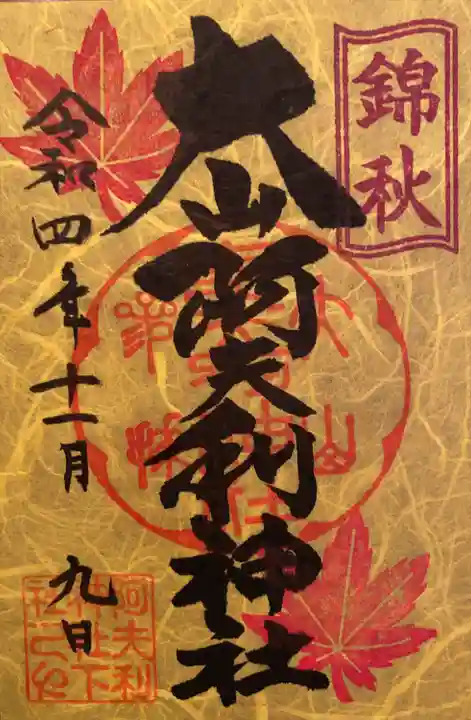 錦秋
大山阿夫利神社
令和四年十一月
九日
阿夫利
神社下
社